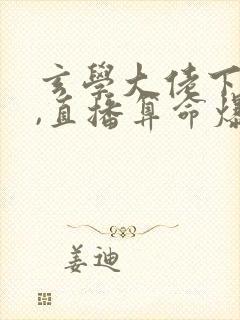 玄學大佬下
,直播算命爆
姜迪